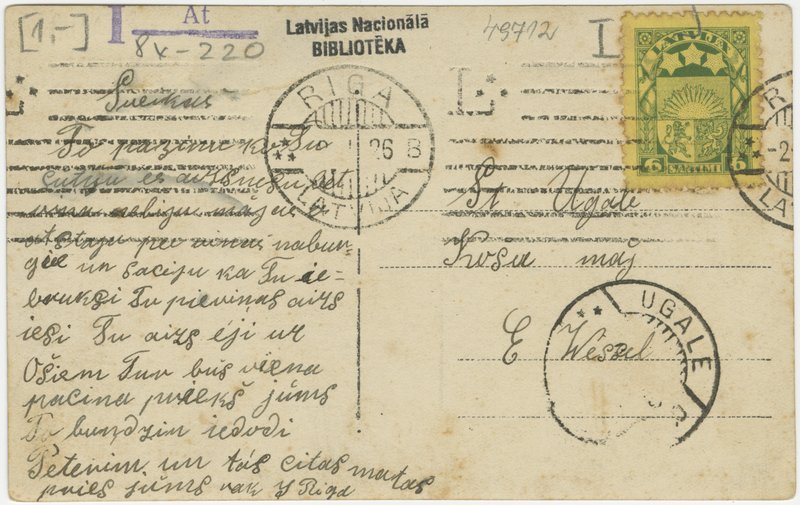 [1,-]
At
8x-220
Latvijas Nacionālā
BIBLIOTĒKA
49712
LATVIJA
6 SANTIMI 6
RIGA
26 B
LATVIJA
Sveikus
Tu
es aizs
mājas
atstaju pee vinas nabur-
gee un saciju ka Tu ie-
bruksi Tu pieviņas aizs
iesi Tu aizs eji ur
Ošiem Tur bus viena
pacina priekš jūms
Tu bundzin iedodi
Peterim un tás citas mantas
pries jūms rak J Riga
St Ugale
Košu māj
E Wessel
UGALE